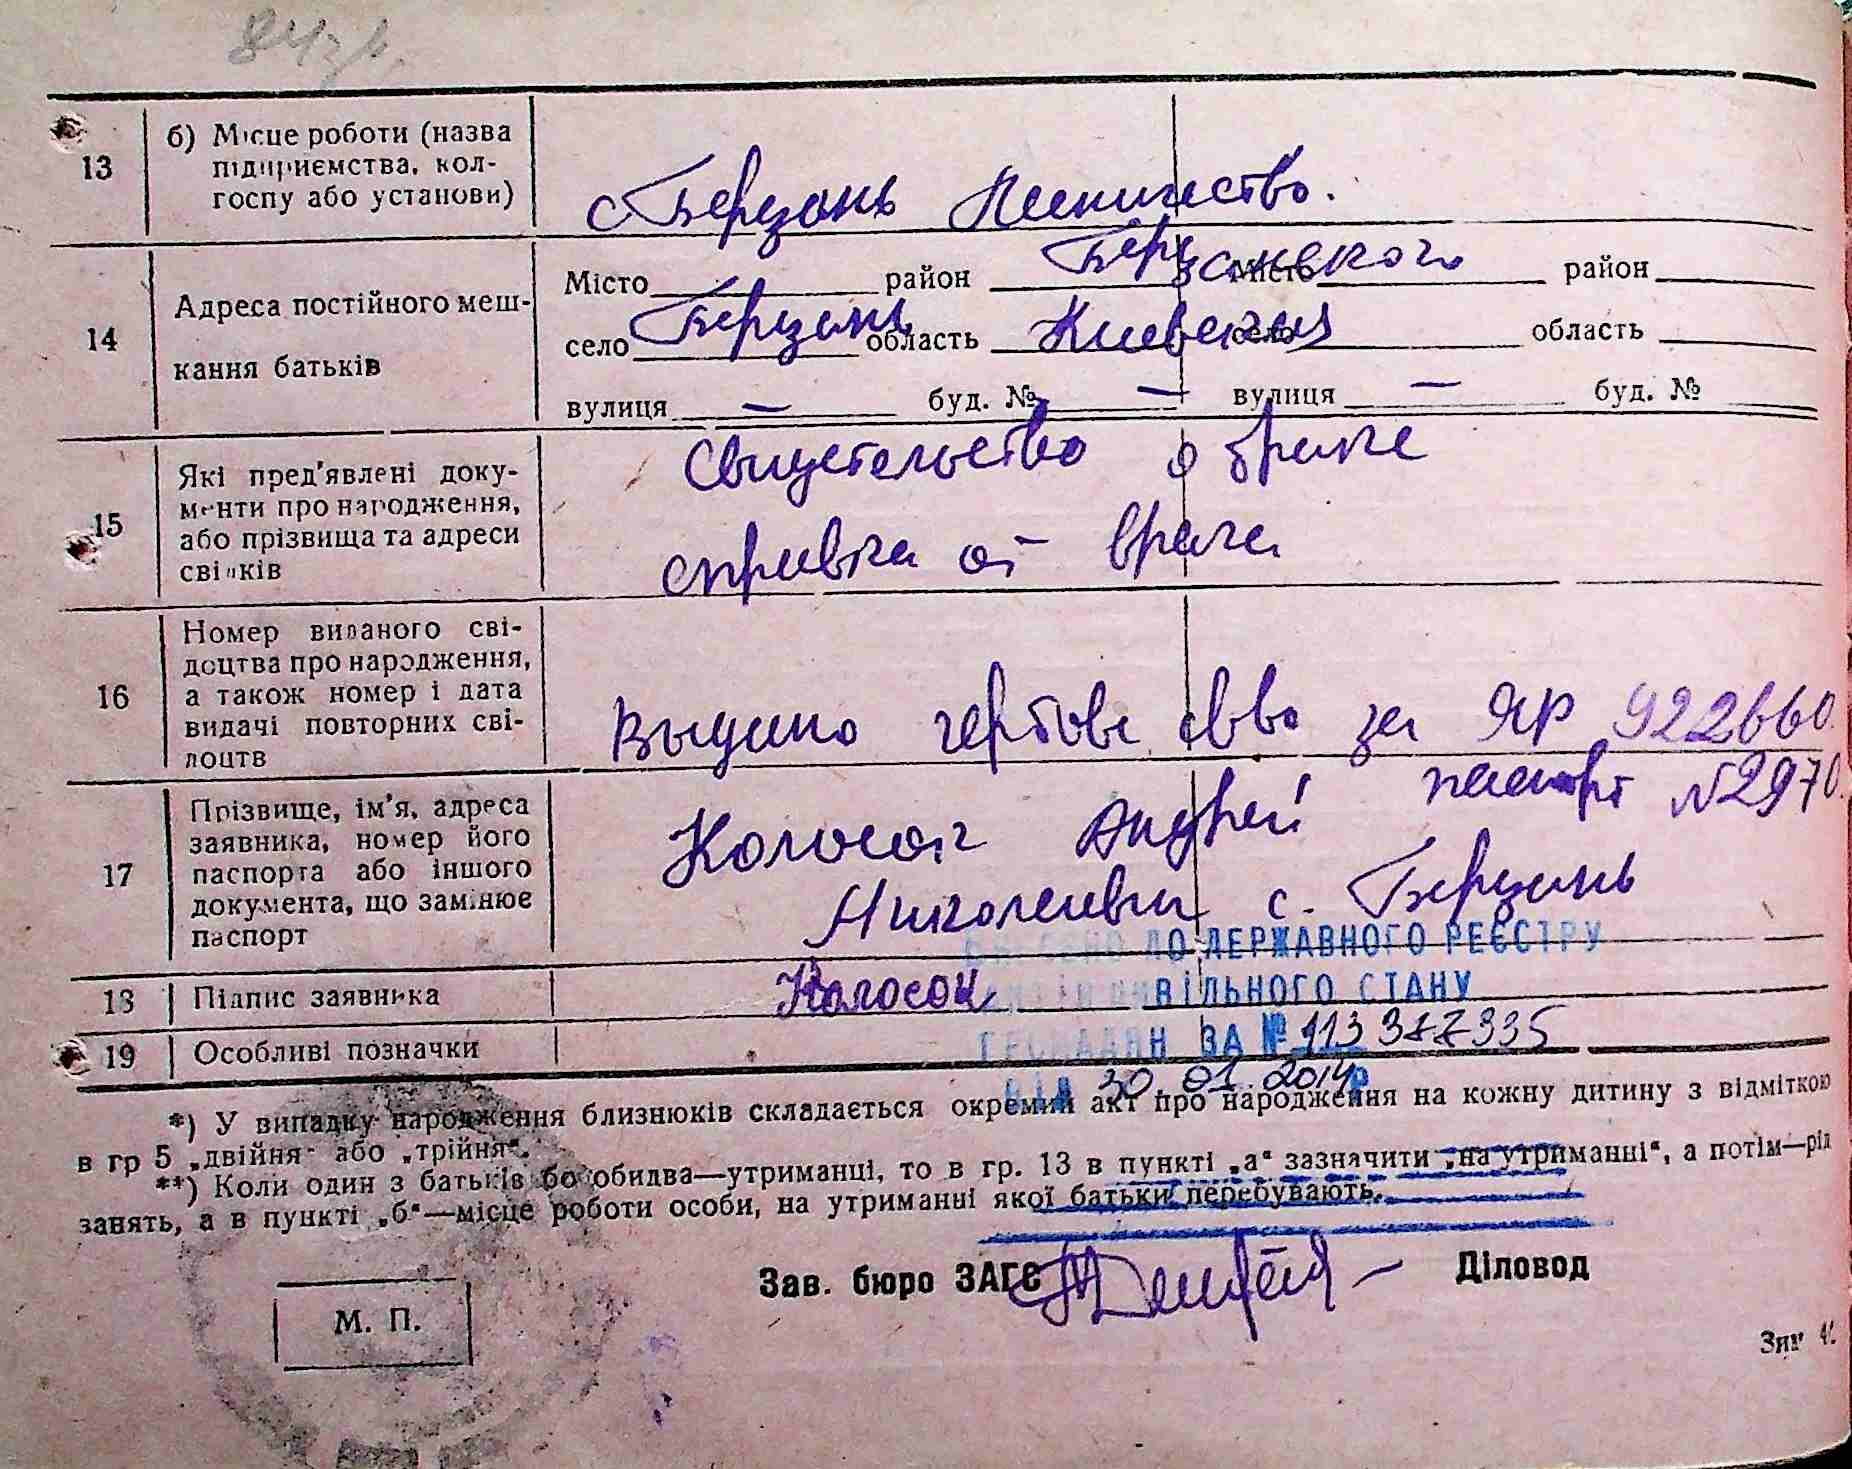 13
б) Місце роботи (назва
підприємства, кол-
госпу або установи)
с Березань Лесничество.
14
Адреса постійного меш-
кання батьків
Місто район Березанского Місто район
село Березань область Киевская село область
вулиця — буд. № — вулиця — буд. №
15
Які пред'явлені доку-
менти про народження,
або прізвища та адреси
свідків
Свидетельство о браке
справка от врача
16
Номер виданого сві-
доцтва про народження,
а також номер і дата
видачі повторних сві-
доцтв
Выдано св-во за ЯР 922660.
17
Прізвище, ім'я, адреса
заявника, номер його
паспорта або іншого
документа, що замінює
паспорт
Колосок Андрей паспорт №2970.
Николаевич с. Березань
ДО ДЕРЖАВНОГО РЕЄСТРУ
18 Підпис заявника Колосок
ЦИВІЛЬНОГО СТАНУ
19 Особливі позначки
ГРОМАДЯН ЗА №
ВІД 30.01.2014р
*) У випадку народження близнюків складається окремий акт про народження на кожну дитину з відміткою
в гр 5 „двійня" або „трійня".
**) Коли один з батьків бо обидва—утриманці, то в гр. 13 в пункті „а" зазначити „на утриманні", а потім—рід
занять, а в пункті „б"—місце роботи особи, на утриманні якої батьки перебувають.
Зав. бюро ЗАГС Діловод
М. П.